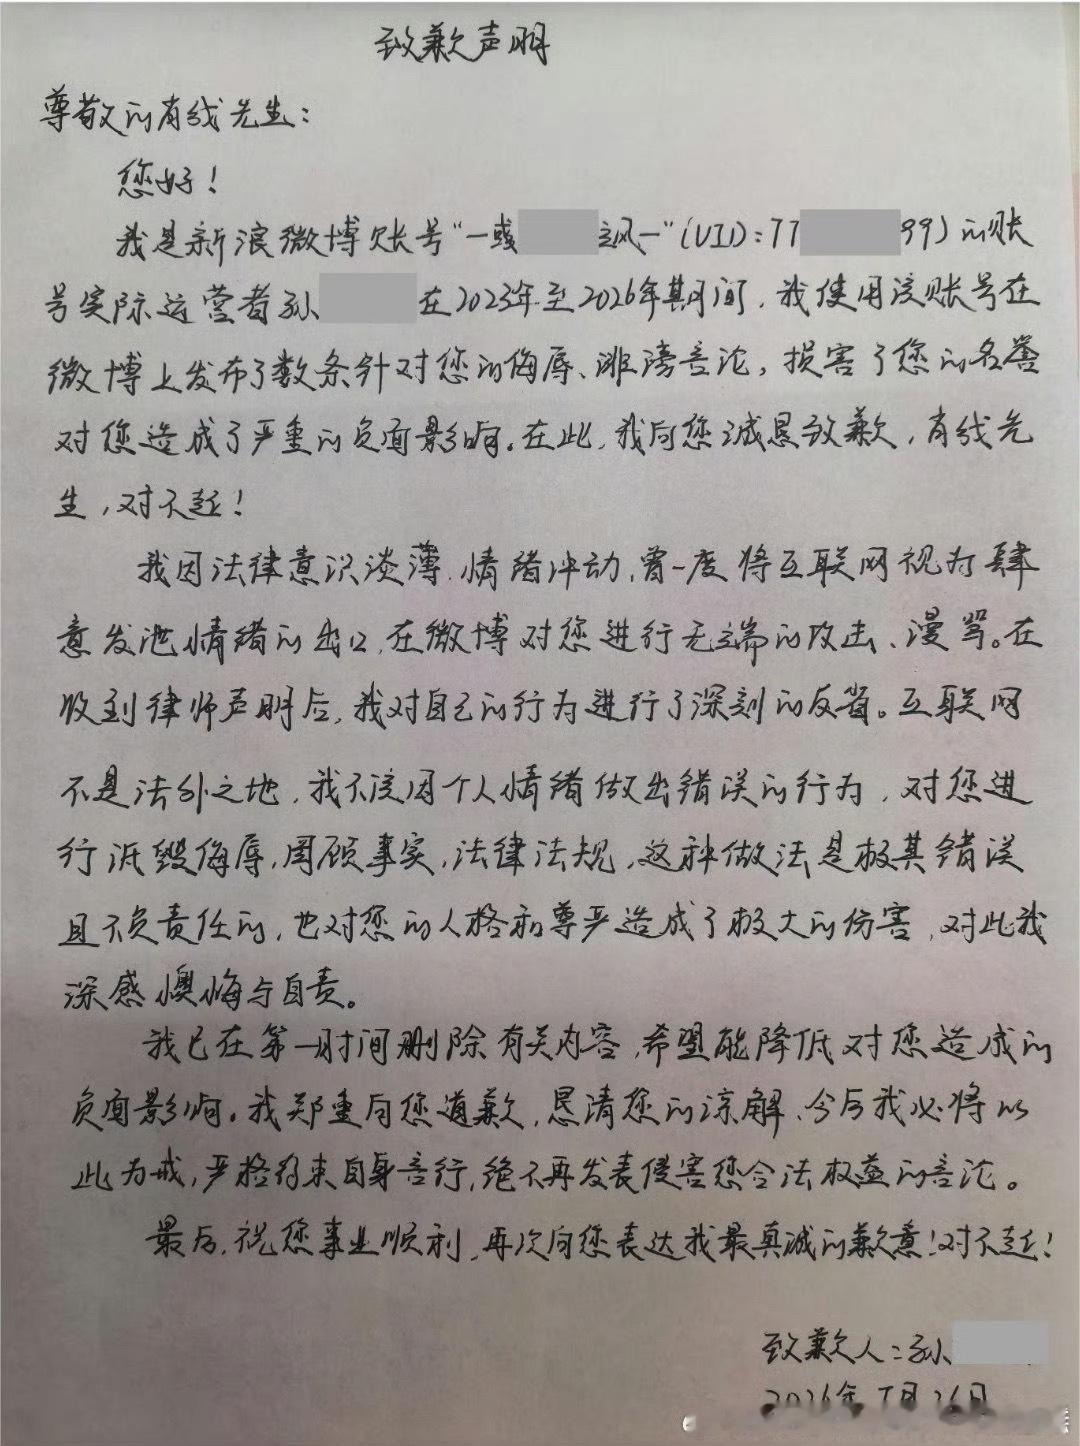 致歉声明
尊敬的有线先生：
您好！
我是新浪微博账号“一或 立风一”(UID:77 99)的账
号实际运营者孙 在2023年至2026年期间，我使用该账号在
微博上发布了数条针对您的侮辱、诽谤言论，损害了您的名誉
对您造成了严重的负面影响。在此，我向您诚恳致歉，有线先
生，对不起！
我因法律意识淡薄、情绪冲动，曾一度将互联网视为肆
意发泄情绪的出口，在微博对您进行无端的攻击、漫骂。在
收到律师声明后，我对自己的行为进行了深刻的反省。互联网
不是法外之地，我不该因个人情绪做出错误的行为，对您进
行诋毁侮辱，罔顾事实，法律法规，这种做法是极其错误
且不负责任的，也对您的人格和尊严造成了极大的伤害，对此我
深感懊悔与自责。
我已在第一时间删除有关内容，希望能降低对您造成的
负面影响。我郑重向您道歉，恳请您的谅解，今后我必将以
此为戒，严格约束自身言行，绝不再发表侵害您合法权益的言论。
最后，祝您事业顺利，再次向您表达我最真诚的歉意！对不起！
致歉人：孙
2026年 月26日